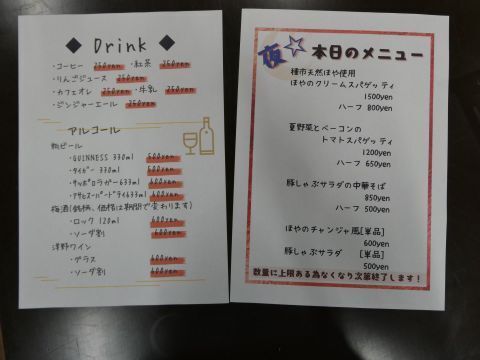 ◆ Drink ◆
・コーヒー 250yen ・紅茶 250yen
・りんごジュース 250yen
・カフェオレ 250yen ・牛乳 250yen
・ジンジャーエール 250yen
アルコール
瓶ビール
・GUINNESS 330ml 500yen
・タイガー 330ml 500yen
・サッポロラガー633ml 600yen
・アサヒスーパードライ633ml 600yen
梅酒(銘柄、価格は期間で変わります)
・ロック 120ml 600yen
・ソーダ割 600yen
澤野ワイン
・グラス 600yen
・ソーダ割 600yen
夜☆本日のメニュー
種市天然ほや使用
ほやのクリームスパゲッティ
1500yen
ハーフ 800yen
夏野菜とベーコンの
トマトスパゲッティ
1200yen
ハーフ 650yen
豚しゃぶサラダの中華そば
850yen
ハーフ 500yen
ほやのチャンジャ風[単品]
600yen
豚しゃぶサラダ [単品]
500yen
数量に上限ある為なくなり次第終了します!